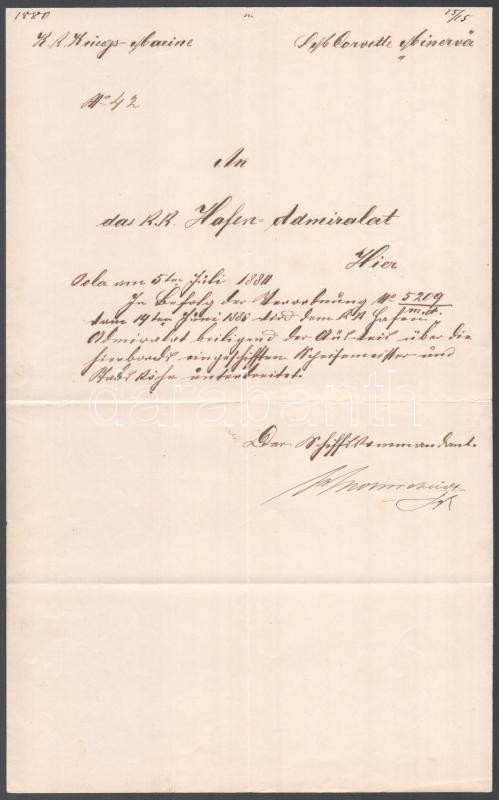 1880
15/15
K. K. Kriegs-Marine
S.M. Corvette „Minerva“
No 42
An
das K.K. Hafen-Admiralat
Hier
Pola am 5ten Juli 1880
In Befolg der Verordnung No 5209/M.A.
vom 14ten Juni 1880 wird dem K.K. Hafen-
Admiralat beiliegend der Ausweis über die
hierbords eingeschifften und
Stabsköche unterbreitet.
darabanth
Der Schiffskommandant.